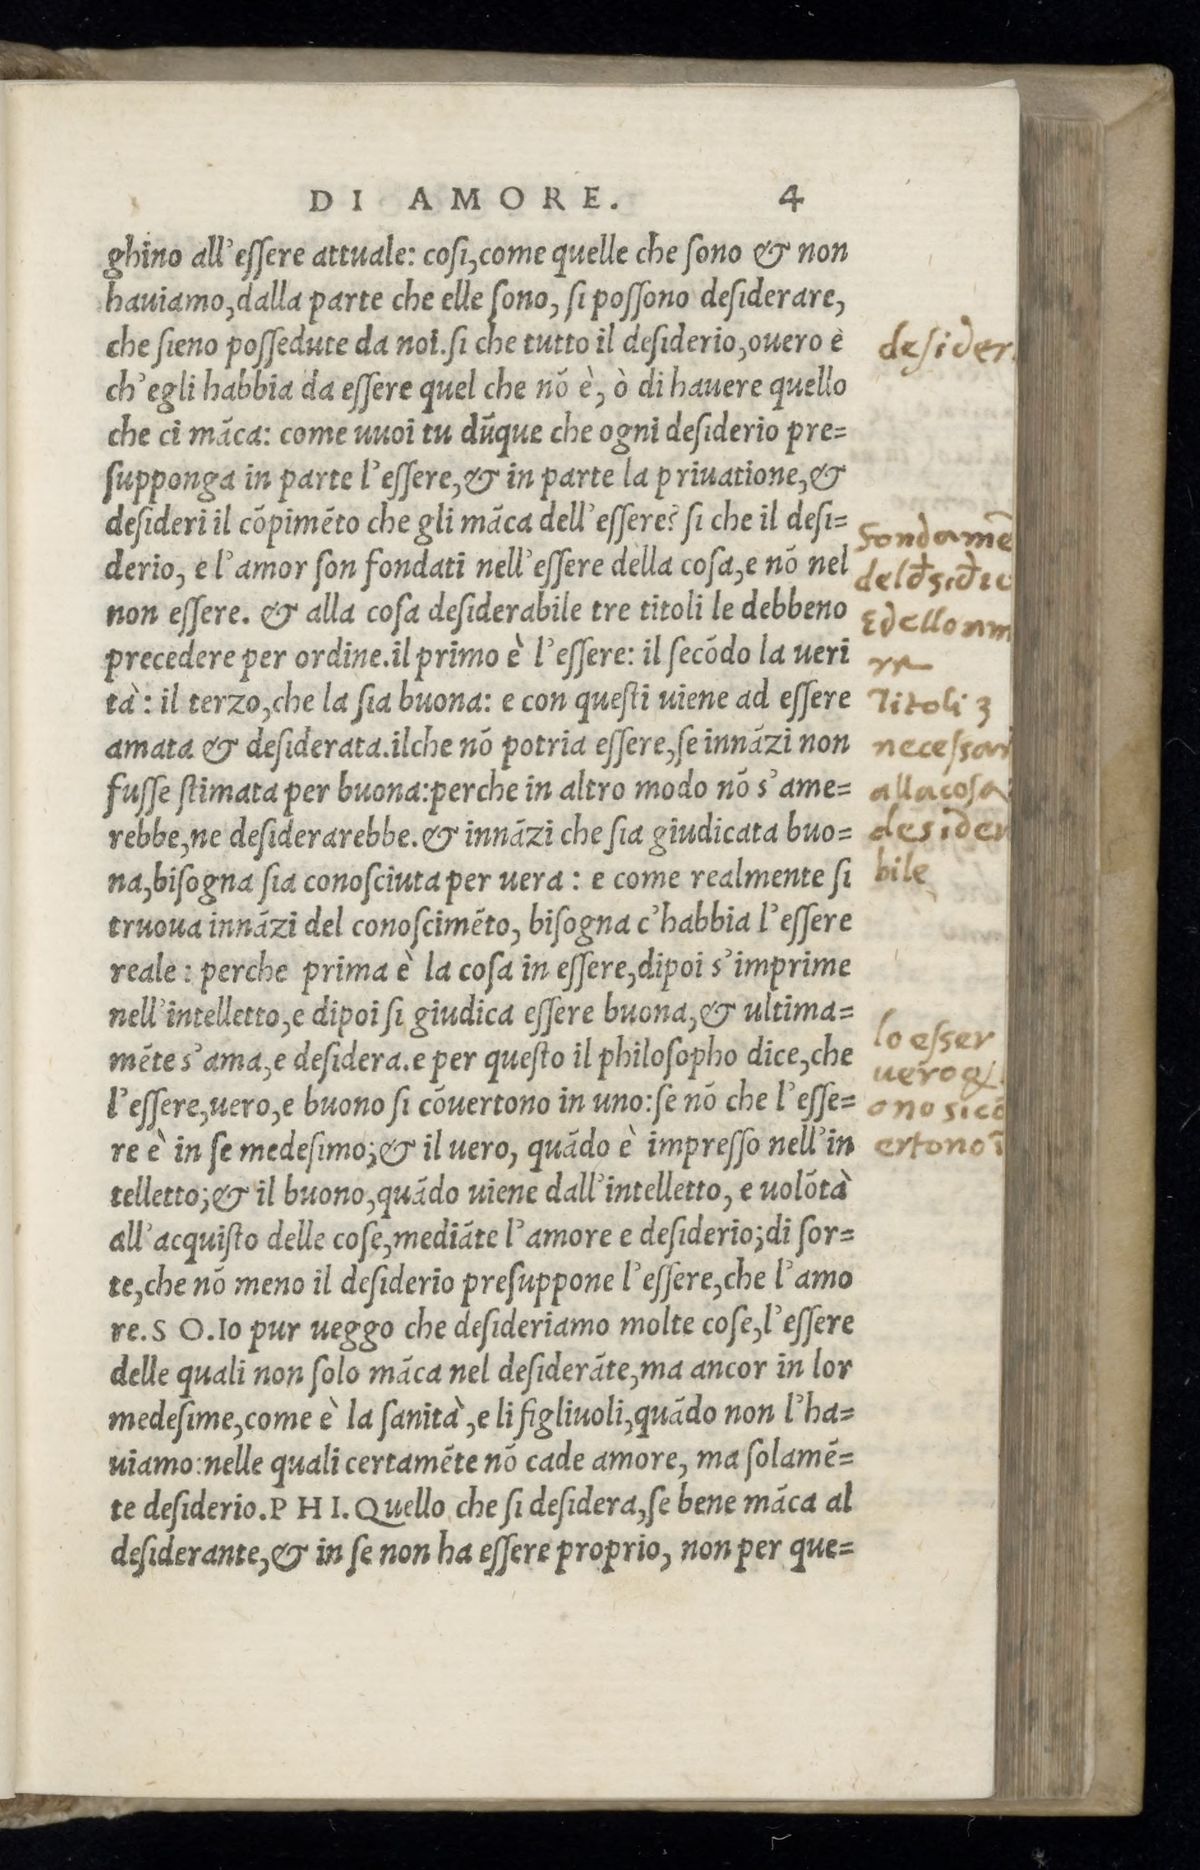 DI AMORE. 4
ghino all'essere attuale: cosi, come quelle che sono & non
hauiamo, dalla parte che elle sono, si possono desiderare,
che sieno possedute da noi. si che tutto il desiderio, ouero è
ch'egli habbia da essere quel che nõ è, ò di hauere quello
che ci mãca: come uuoi tu dũque che ogni desiderio pre=
supponga in parte l'essere, & in parte la priuatione, &
desideri il cõpimẽto che gli mãca dell'essere? si che il desi=
derio, e l'amor son fondati nell'essere della cosa, e nõ nel
non essere. & alla cosa desiderabile tre titoli le debbeno
precedere per ordine. il primo è l'essere: il secõdo la ueri
tà: il terzo, che la sia buona: e con questi uiene ad essere
amata & desiderata. ilche nõ potria essere, se innãzi non
fusse stimata per buona: perche in altro modo nõ s'ame=
rebbe, ne desiderarebbe. & innãzi che sia giudicata buo=
na, bisogna sia conosciuta per uera: e come realmente si
truoua innãzi del conoscimẽto, bisogna c'habbia l'essere
reale: perche prima è la cosa in essere, dipoi s'imprime
nell'intelletto, e dipoi si giudica essere buona, & ultima=
mẽte s'ama, e desidera. e per questo il philosopho dice, che
l'essere, uero, e buono si cõuertono in uno: se nõ che l'esse=
re è in se medesimo; & il uero, quãdo è impresso nell'in
telletto; & il buono, quãdo uiene dall'intelletto, e uolõtà
all'acquisto delle cose, mediãte l'amore e desiderio; di sor=
te, che nõ meno il desiderio presuppone l'essere, che l'amo
re. S O. Io pur ueggo che desideriamo molte cose, l'essere
delle quali non solo mãca nel desiderãte, ma ancor in lor
medesime, come è la sanità, e li figliuoli, quãdo non l'ha=
uiamo: nelle quali certamẽte nõ cade amore, ma solamẽ=
te desiderio. P H I. Quello che si desidera, se bene mãca al
desiderante, & in se non ha essere proprio, non per que=
desider
Fondamẽ
Titoli 3
necessar
alla cosa
desider
bile
lo esser
uero
ono si cõ
ertono ĩ